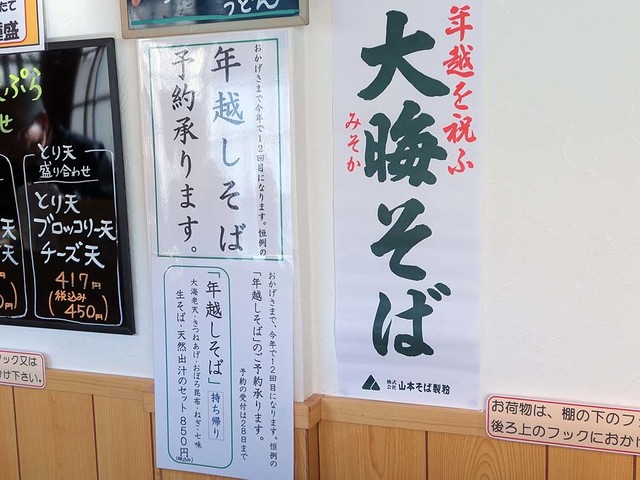 年越を祝ふ
大晦そば
みそか
株式会社 山本そば製粉
おかげさまで今年で12回目になります。恒例の
年越しそば
予約承ります。
おかげさまで、今年で12回目になります。恒例の
「年越しそば」のご予約承ります。
予約の受付は28日まで
「年越しそば」持ち帰り
大海老天・きつねあげ・おぼろ昆布・ねぎ・七味
生そば・天然出汁のセット850円
(税込み)
うどん
とり天
盛り合わせ
とり天
ブロッコリー天
チーズ天
417円
(税込み
450円)
お荷物は、棚の下のフ
後ろ上のフックにおか
フック又は
け下さい。